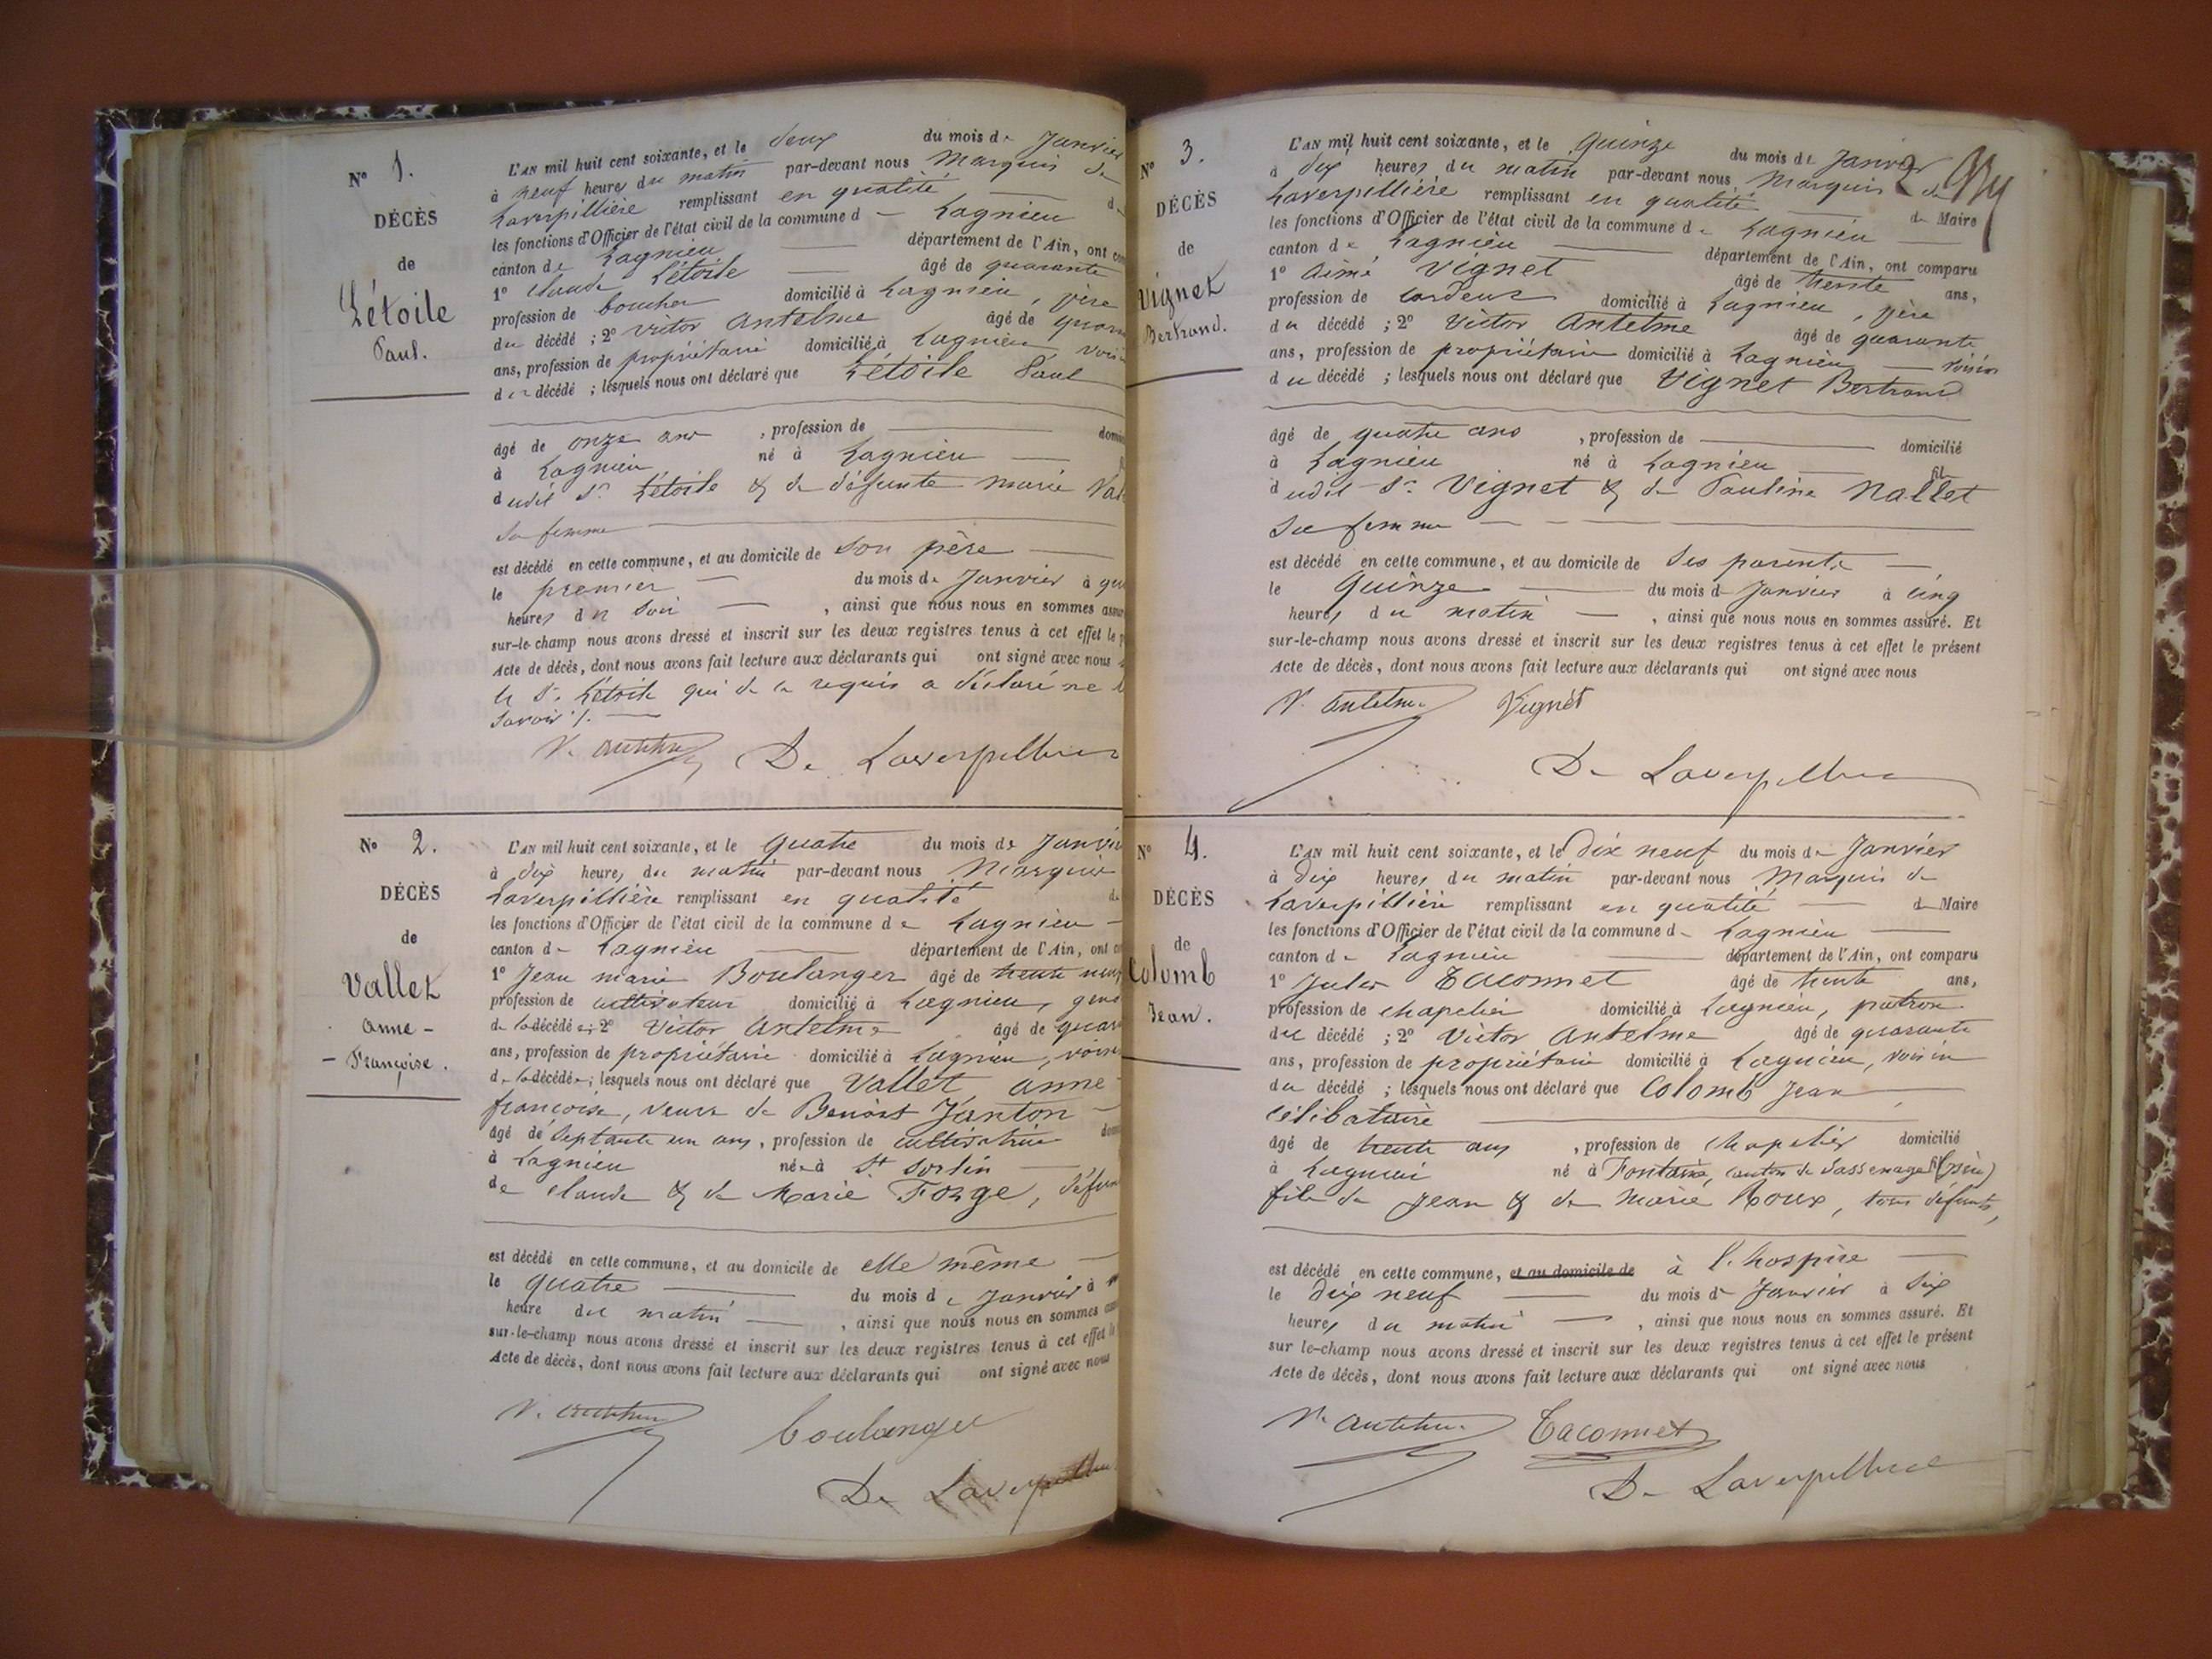 N° 1.
DÉCÈS
de
Létoile
Paul.
L'AN mil huit cent soixante, et le deux du mois de Janvier
à neuf heures du matin par-devant nous Marquis de
Laverpillière remplissant en qualité d
les fonctions d'Officier de l'état civil de la commune de Lagnieu
canton de Lagnieu département de l'Ain, ont com
1° Claude Létoile âgé de quarante
profession de boucher domicilié à Lagnieu, père
du décédé ; 2° Victor Antelme âgé de quaran
ans, profession de propriétaire domicilié à Lagnieu voisin
du décédé ; lesquels nous ont déclaré que Létoile Paul
âgé de onze ans , profession de domi
à Lagnieu né à Lagnieu
dudit Sr. Létoile & de défunte Marie Val
sa femme
est décédé en cette commune, et au domicile de son père
le premier du mois de Janvier à
heures du soir , ainsi que nous nous en sommes assur
sur-le-champ nous avons dressé et inscrit sur les deux registres tenus à cet effet le p
Acte de décès, dont nous avons fait lecture aux déclarants qui ont signé avec nous
le Sr. Létoile qui de ce requis a déclaré ne le
savoir ./.
V. Antelme De Laverpillière
N° 2.
DÉCÈS
de
Vallet
Anne-
-Françoise.
L'AN mil huit cent soixante, et le quatre du mois de Janvier
à dix heures du matin par-devant nous Marquis
Laverpillière remplissant en qualité de
les fonctions d'Officier de l'état civil de la commune de Lagnieu
canton de Lagnieu département de l'Ain, ont co
1° Jean marie Boulanger âgé de trente neuf
profession de cultivateur domicilié à Lagnieu, gend
de la décédée ; 2° Victor Antelme âgé de quara
ans, profession de propriétaire domicilié à Lagnieu, voisin
de la décédée ; lesquels nous ont déclaré que Vallet Anne
françoise, veuve de Benoit Janton
âgé de septante un ans, profession de cultivatrice domi
à Lagnieu née à St Sorlin
de Claude & de Marie Forge, défun
est décédé en cette commune, et au domicile de elle même
le quatre du mois de Janvier à
heure du matin , ainsi que nous nous en sommes assu
sur-le-champ nous avons dressé et inscrit sur les deux registres tenus à cet effet le
Acte de décès, dont nous avons fait lecture aux déclarants qui ont signé avec nous
V. Antelme Boulanger
De Laverpillière
N° 3.
DÉCÈS
de
Vignet
Bertrand.
L'AN mil huit cent soixante, et le Quinze du mois de Janvier
à dix heures du matin par-devant nous Marquis de
Laverpillière remplissant en qualité de Maire
les fonctions d'Officier de l'état civil de la commune de Lagnieu
canton de Lagnieu département de l'Ain, ont comparu
1° Aimé Vignet âgé de trente ans,
profession de cardeur domicilié à Lagnieu, père
du décédé ; 2° Victor Antelme âgé de quarante
ans, profession de propriétaire domicilié à Lagnieu voisin
du décédé ; lesquels nous ont déclaré que Vignet Bertrand
âgé de quatre ans , profession de domicilié
à Lagnieu né à Lagnieu fils
dudit Sr. Vignet & de Pauline Nallet
sa femme
est décédé en cette commune, et au domicile de ses parents
le Quinze du mois de Janvier à cinq
heures du matin , ainsi que nous nous en sommes assuré. Et
sur-le-champ nous avons dressé et inscrit sur les deux registres tenus à cet effet le présent
Acte de décès, dont nous avons fait lecture aux déclarants qui ont signé avec nous
V. Antelme Vignet
De Laverpillière
N° 4.
DÉCÈS
de
Colomb
Jean.
L'AN mil huit cent soixante, et le dix neuf du mois de Janvier
à dix heures du matin par-devant nous Marquis de
Laverpillière remplissant en qualité de Maire
les fonctions d'Officier de l'état civil de la commune de Lagnieu
canton de Lagnieu département de l'Ain, ont comparu
1° Jules Taconnet âgé de trente ans,
profession de chapelier domicilié à Lagnieu, patron
du décédé ; 2° Victor Antelme âgé de quarante
ans, profession de propriétaire domicilié à Lagnieu, voisin
du décédé ; lesquels nous ont déclaré que Colomb Jean,
célibataire
âgé de trente ans , profession de chapelier domicilié
à Lagnieu né à Fontaine, canton de Sassenage (Isère)
fils de Jean & de Marie Roux, tous défunts,
est décédé en cette commune, et au domicile de à l'hospice
le dix neuf du mois de Janvier à six
heures du matin , ainsi que nous nous en sommes assuré. Et
sur le-champ nous avons dressé et inscrit sur les deux registres tenus à cet effet le présent
Acte de décès, dont nous avons fait lecture aux déclarants qui ont signé avec nous
V. Antelme Taconnet
De Laverpillière